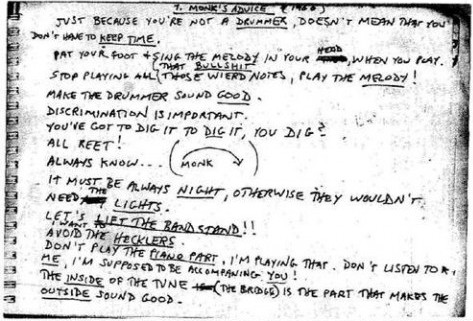 T. MONK'S ADVICE (1960)
JUST BECAUSE YOU'RE NOT A DRUMMER, DOESN'T MEAN THAT YOU
DON'T HAVE TO KEEP TIME.
PAT YOUR FOOT & SING THE MELODY IN YOUR HEAD, WHEN YOU PLAY.
STOP PLAYING ALL (THAT BULLSHIT) THOSE WIERD NOTES, PLAY THE MELODY!
MAKE THE DRUMMER SOUND GOOD.
DISCRIMINATION IS IMPORTANT.
YOU'VE GOT TO DIG IT TO DIG IT, YOU DIG?
ALL REET!
ALWAYS KNOW... (MONK)
IT MUST BE ALWAYS NIGHT, OTHERWISE THEY WOULDN'T
NEED THE LIGHTS.
LET'S LIFT THE BAND STAND!!
I WANT TO AVOID THE HECKLERS.
DON'T PLAY THE PIANO PART, I'M PLAYING THAT. DON'T LISTEN TO
ME, I'M SUPPOSED TO BE ACCOMPANING YOU!
THE INSIDE OF THE TUNE (THE BRIDGE) IS THE PART THAT MAKES THE
OUTSIDE SOUND GOOD.